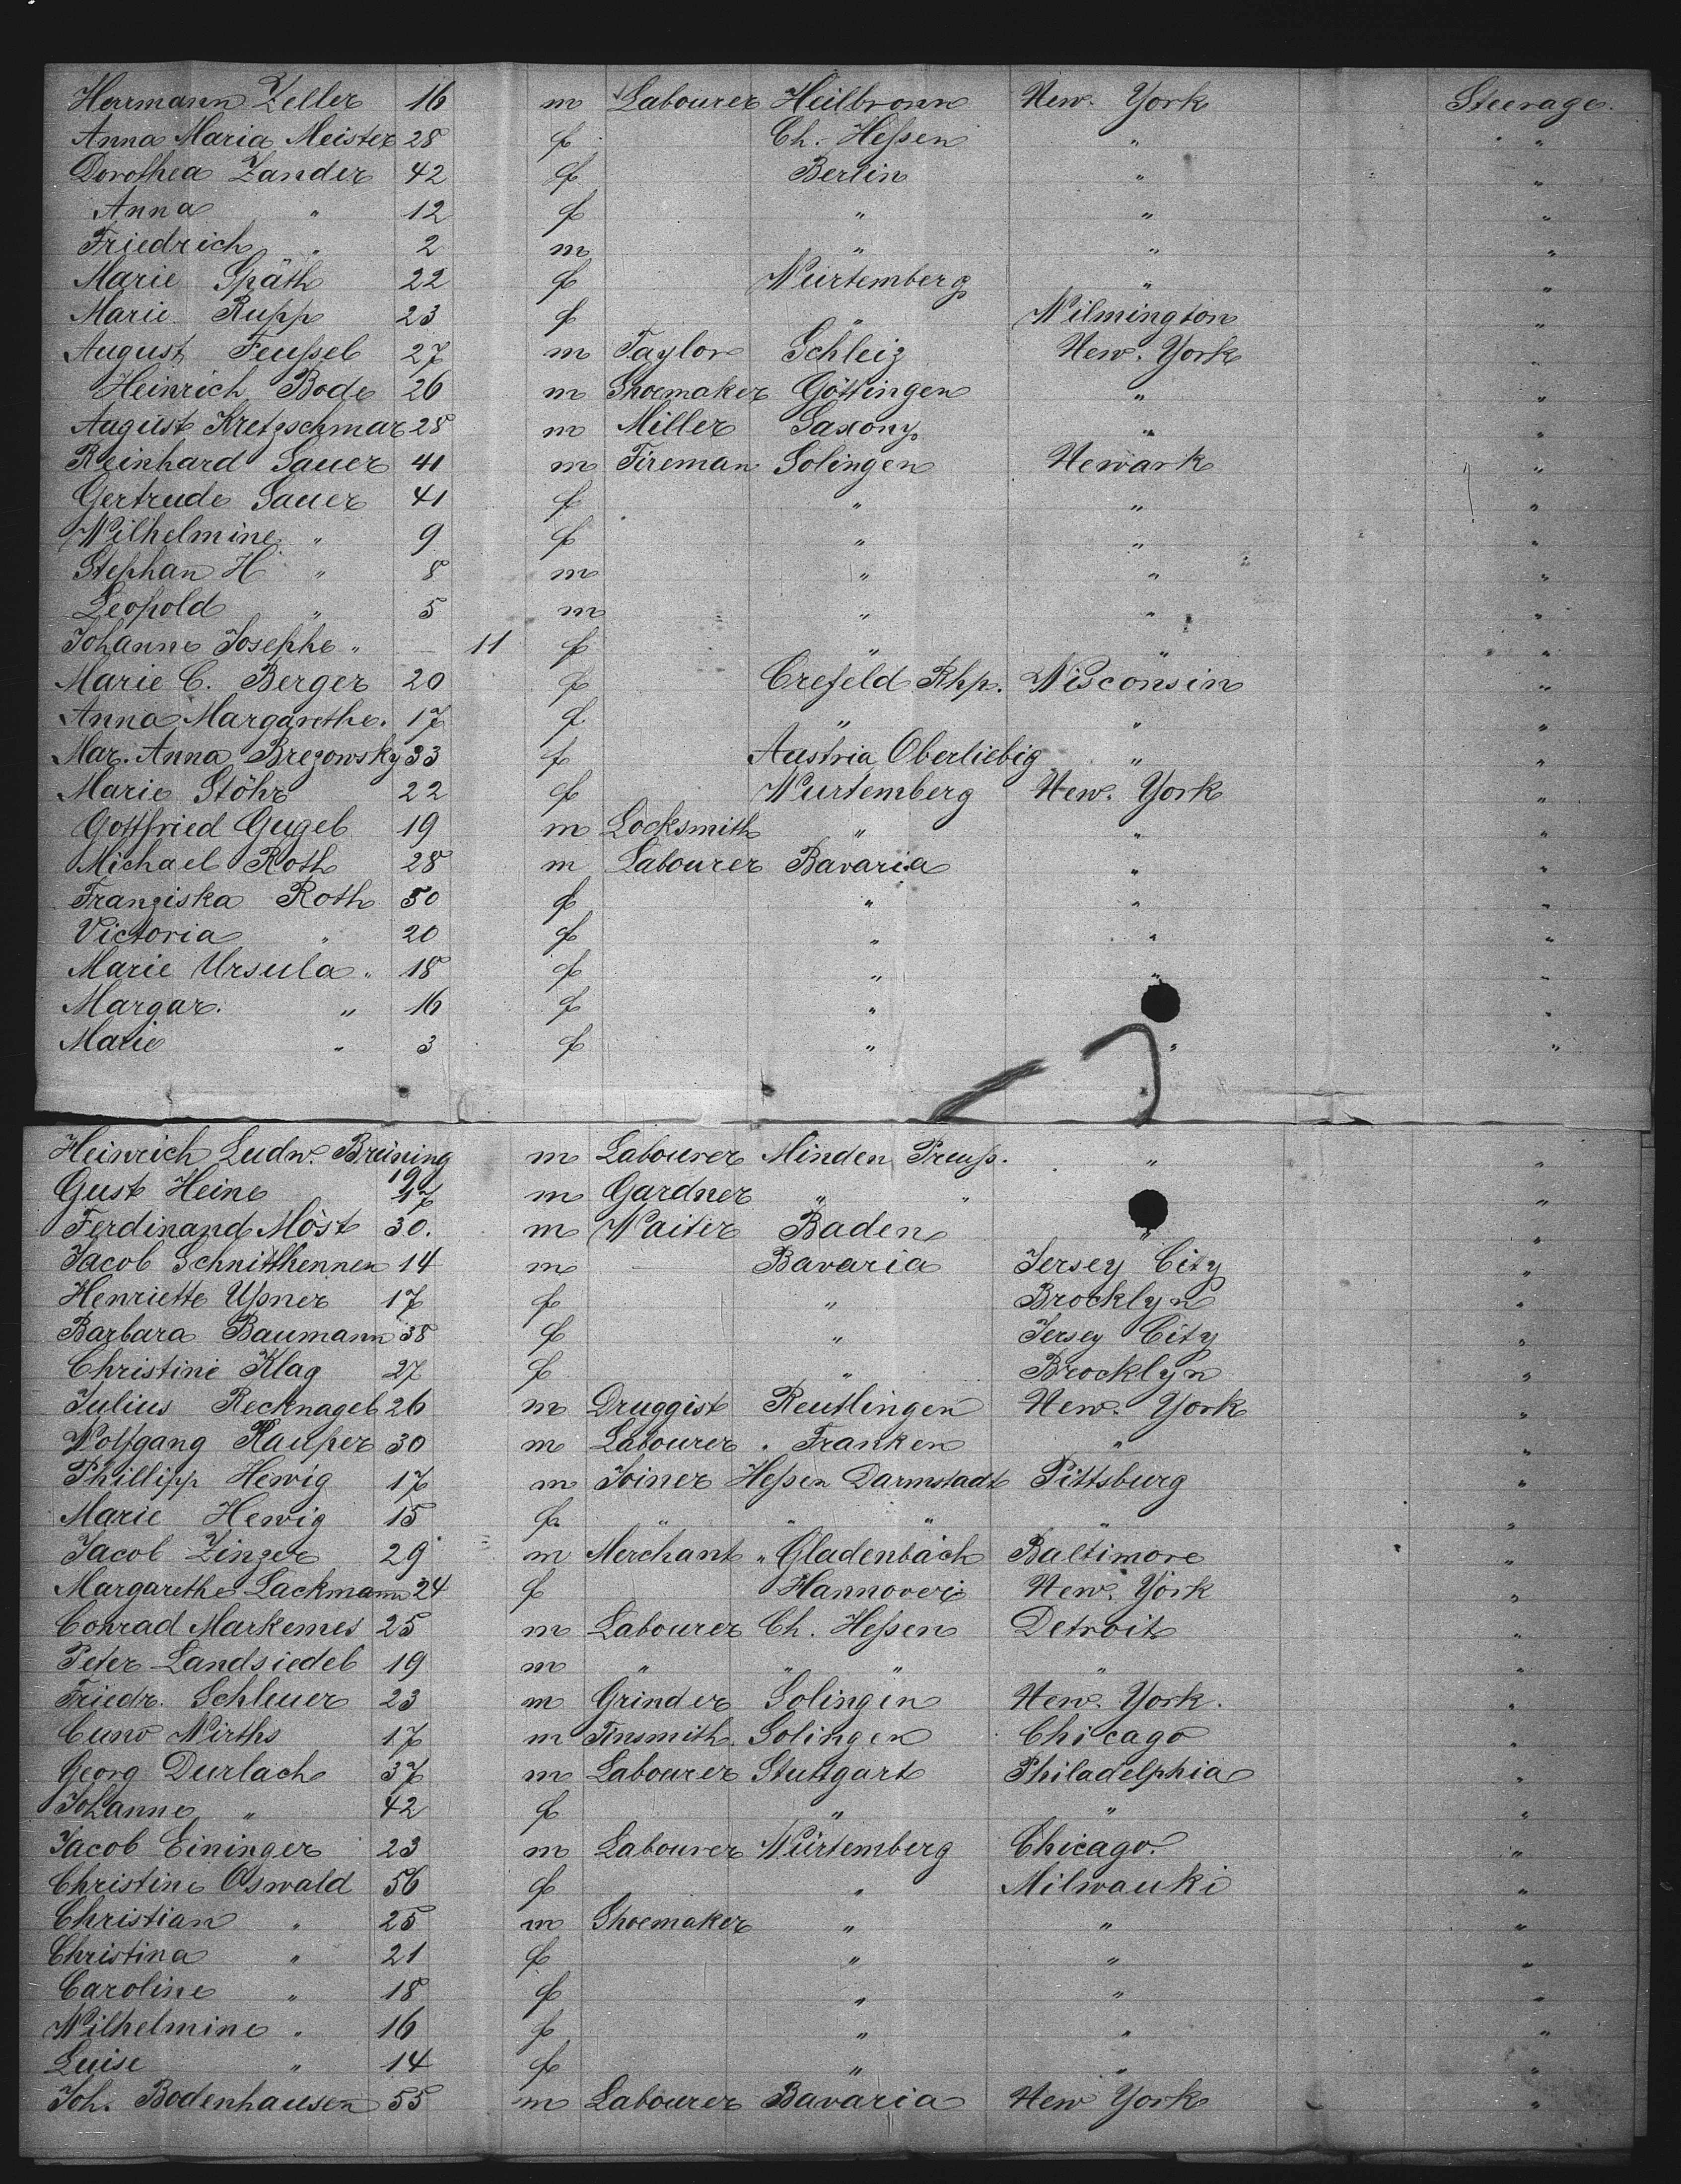 Herrmann Zeller 16 m Labourer Heilbronn New. York Steerage.
Anna Maria Meister 28 f Ch. Heſsen " "
Dorothea Zander 42 f Berlin " "
Anna " 12 f " " "
Friedrich " 2 m " " "
Marie Späth 22 f Würtemberg " "
Marie Rupp 23 f " Wilmington "
August Feuſsel 27 m Taylor Schleiz New. York "
Heinrich Bode 26 m Shoemaker Göttingen " "
August Kretzschmar 28 m Miller Saxony " "
Reinhard Sauer 41 m Fireman Solingen Newark "
Gertrude Sauer 41 f " " "
Wilhelmine " 9 f " " "
Stephan H " 8 m " " "
Leopold " 5 m " " "
Johanne Josephe " — 11 f " " "
Marie C. Berger 20 f Crefeld Rhp. Wisconsin "
Anna Margarethe. 17 f " " "
Mar. Anna Brezowsky 33 f Austria Oberliebig " "
Marie Stöhr 22 f Wurtemberg New. York "
Gottfried Gugel 19 m Locksmith " " "
Michael Roth 28 m Labourer Bavaria " "
Franziska Roth 50 f " " "
Victoria " 20 f " " "
Marie Ursula " 18 f " " "
Margar. " 16 f " "
Marie " 3 f " " "
Heinrich Ludw. Brüning m Labourer Minden Preuſs. " "
19
Gust Heine 17 m Gardner " " "
Ferdinand Möst 30. m Waiter Baden " "
Jacob Schnitthennen 14 m — Bavaria Jersey City "
Henriette 17 f " Brocklyn "
Barbara Baumann 38 f " Jersey City "
Christine Klag 27 f " Brocklyn "
Julius Recknagel 26 m Druggist Reutlingen New. York "
Wolfgang Kauſser 30 m Labourer Franken " "
Phillipp Hewig 17 m Joiner Heſsen Darmstadt Pittsburg "
Marie Hewig 15 f " " " " "
Jacob Zinger 29 m Merchant " Gladenbach Baltimore "
Margarethe Lackmann 24 f Hannover New. York "
Conrad Markemes 25 m Labourer Ch. Heſsen Detroit "
Peter Landsiedel 19 m " " " " "
Friedr. Schleuer 23 m Grinder Solingen New. York. "
Cuno Wirths 17 m Tinsmith Solingen Chicago "
Georg Durlach 37 m Labourer Stuttgart Philadelphia "
Johanne " 42 f " " "
Jacob Eininger 23 m Labourer Würtemberg Chicago. "
Christine Oswald 56 f " Milwauki "
Christian " 25 m Shoemaker " " "
Christina " 21 f " " "
Caroline " 18 f " " "
Wilhelmine " 16 f " " "
Luise " 14 f " " "
Joh. Bodenhausen 55 m Labourer Bavaria New York "